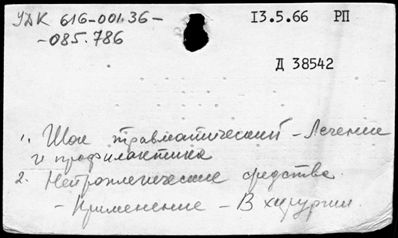 УДК 616-001.36-
-085.786
13.5.66 РП
Д 38542
1. Шок травматический - Лечение
и профилактика
2. Нейроплегические средства.
- Применение - В хирургии.